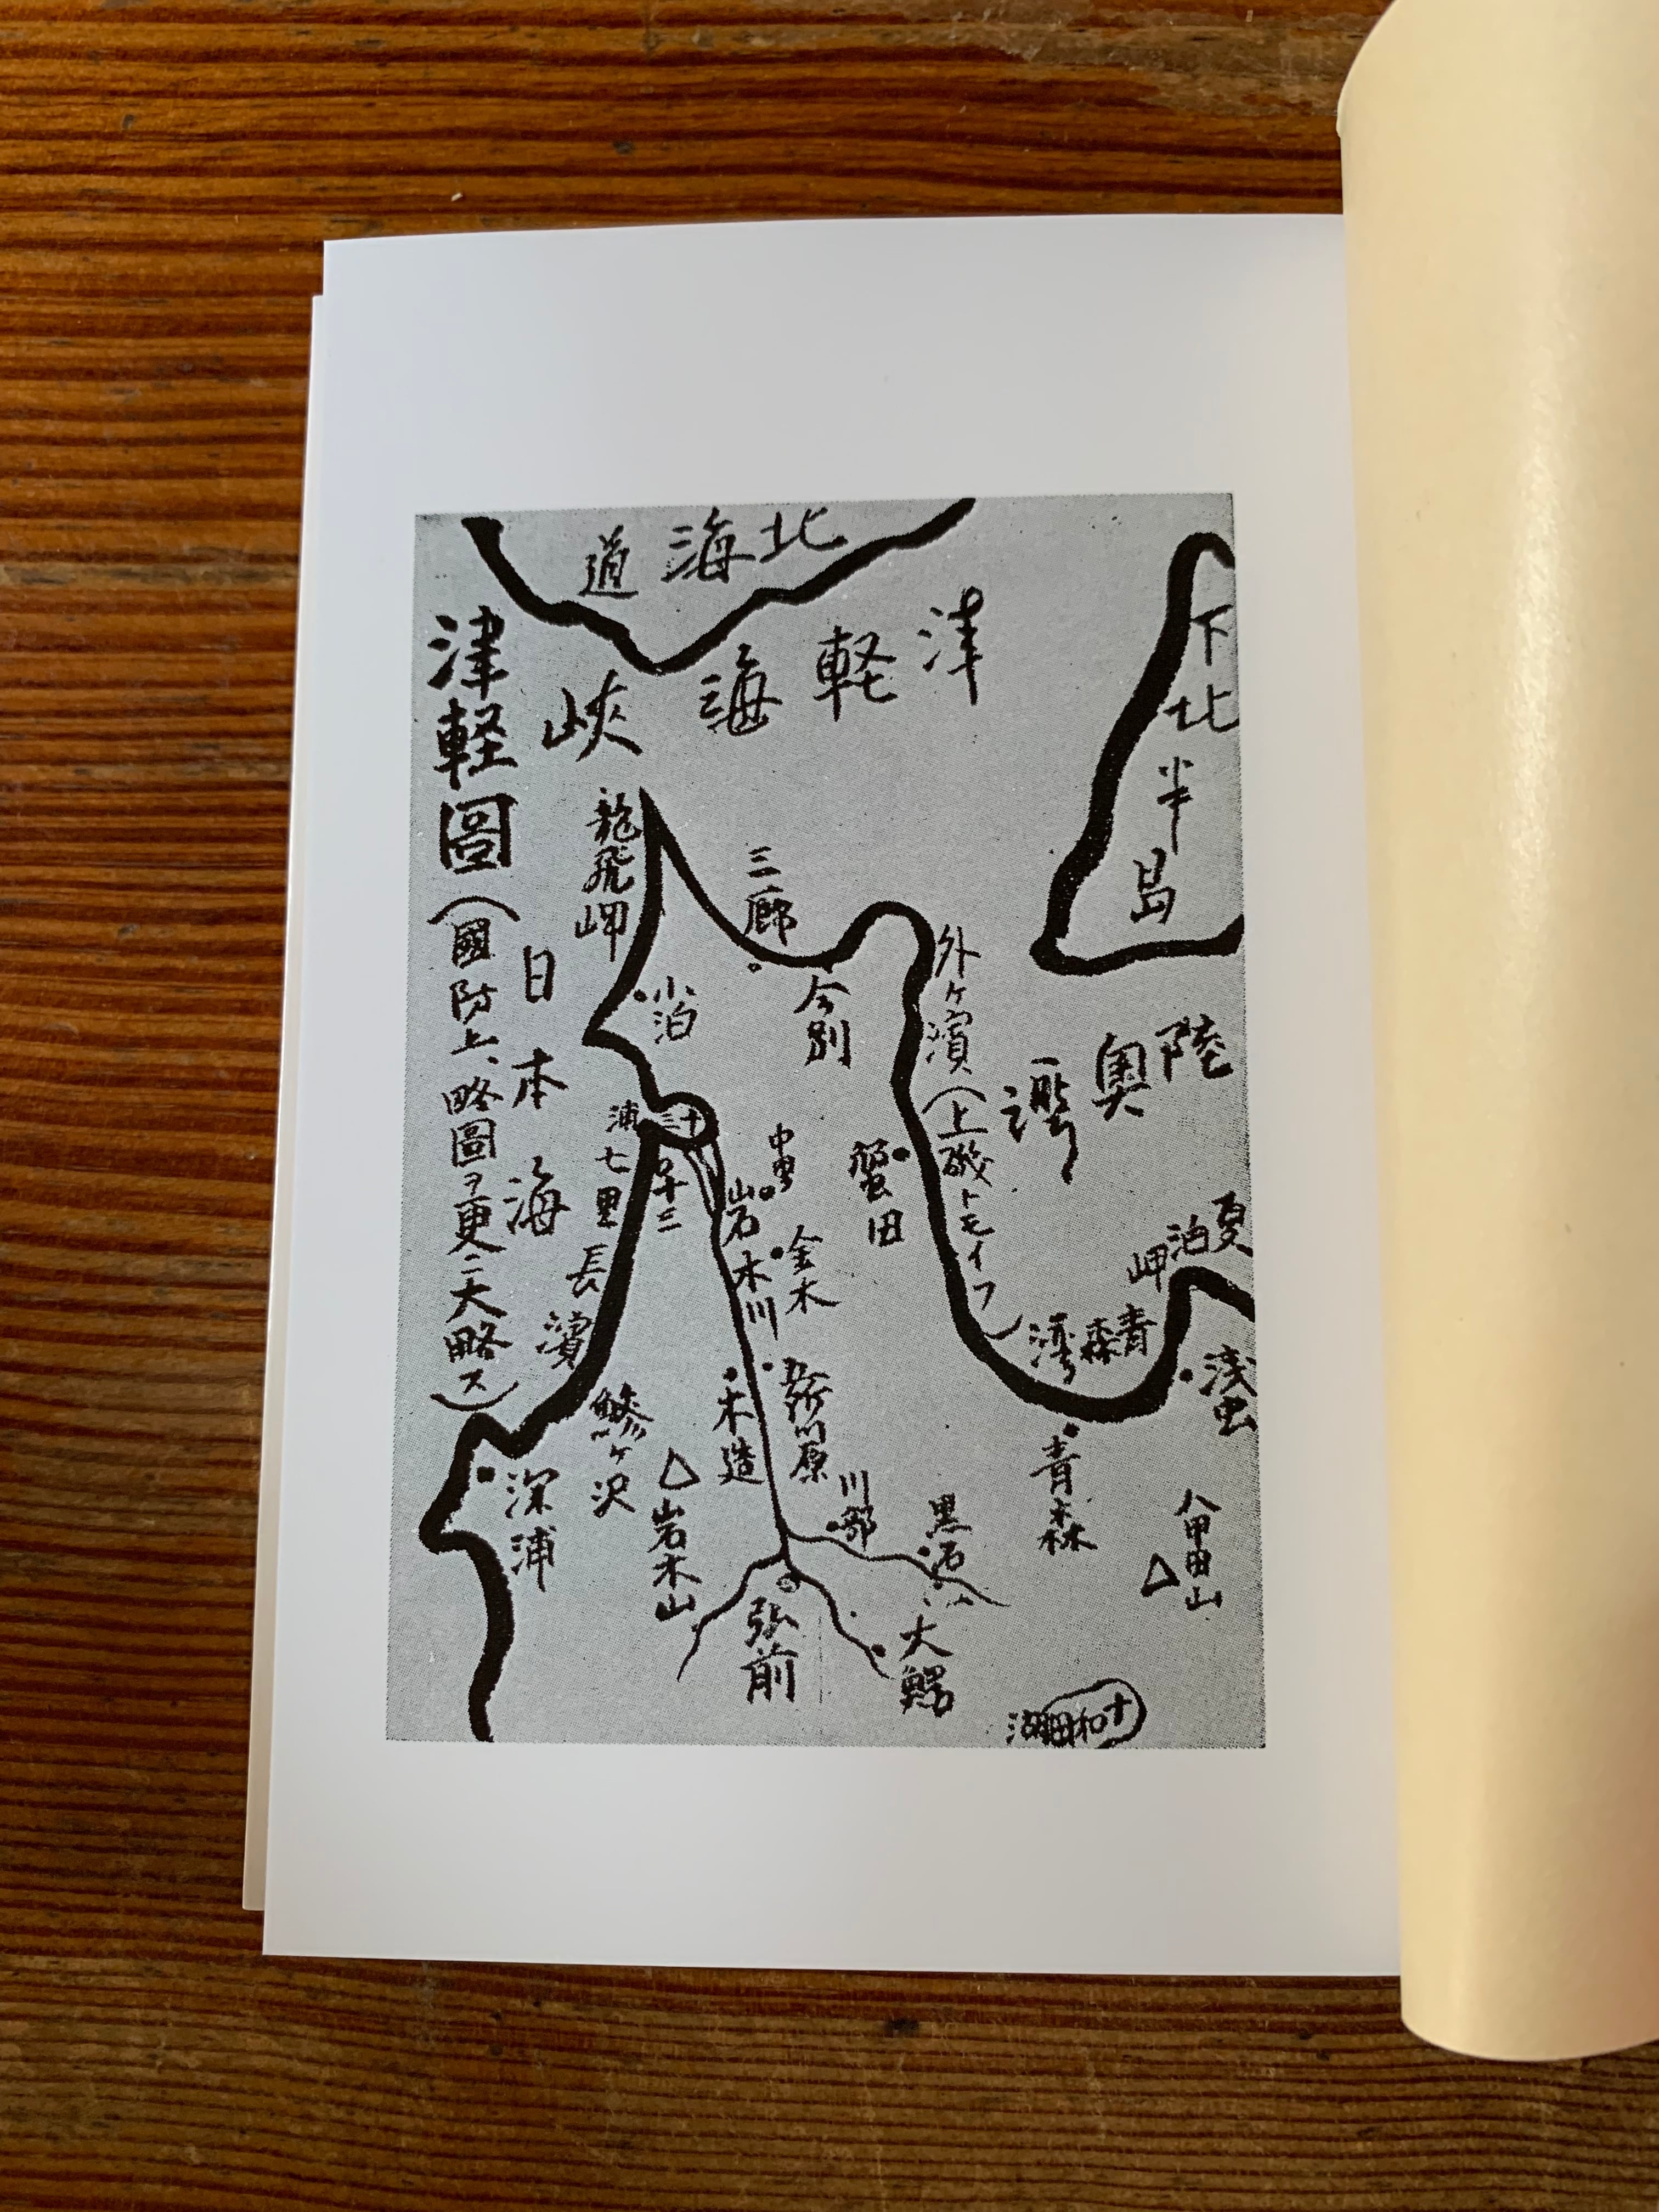 津軽圖(國防上、略圖ヲ更ニ大略ス)
北海道
津軽海峡
下北半島
陸奥湾
日本海
龍飛岬
三厩
今別
小泊
外ヶ濱(上磯トモイフ)
蟹田
十三
十三
中里
岩木川
金木
七里長濱
夏泊岬
青森湾
浅虫
五所川原
木造
鰺ヶ沢
深浦
岩木山
川部
黒石
青森
八甲田山
弘前
大鰐
十和田湖